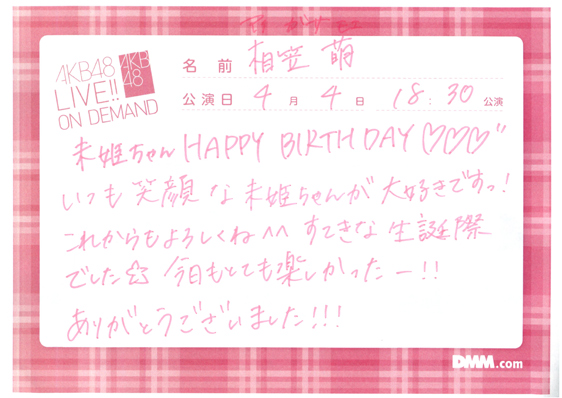 アイガサモエ
AKB48
LIVE!!
ON DEMAND
AKB
48
名前 相笠 萌
公演日 4月4日 18:30公演
未姫ちゃん HAPPY BIRTHDAY♡♡♡"
いつも笑顔な未姫ちゃんが大好きですっ!
これからもよろしくね^^ すてきな生誕際
でした☆ 今日もとても楽しかったー!!
ありがとうございました!!!
DMM.com